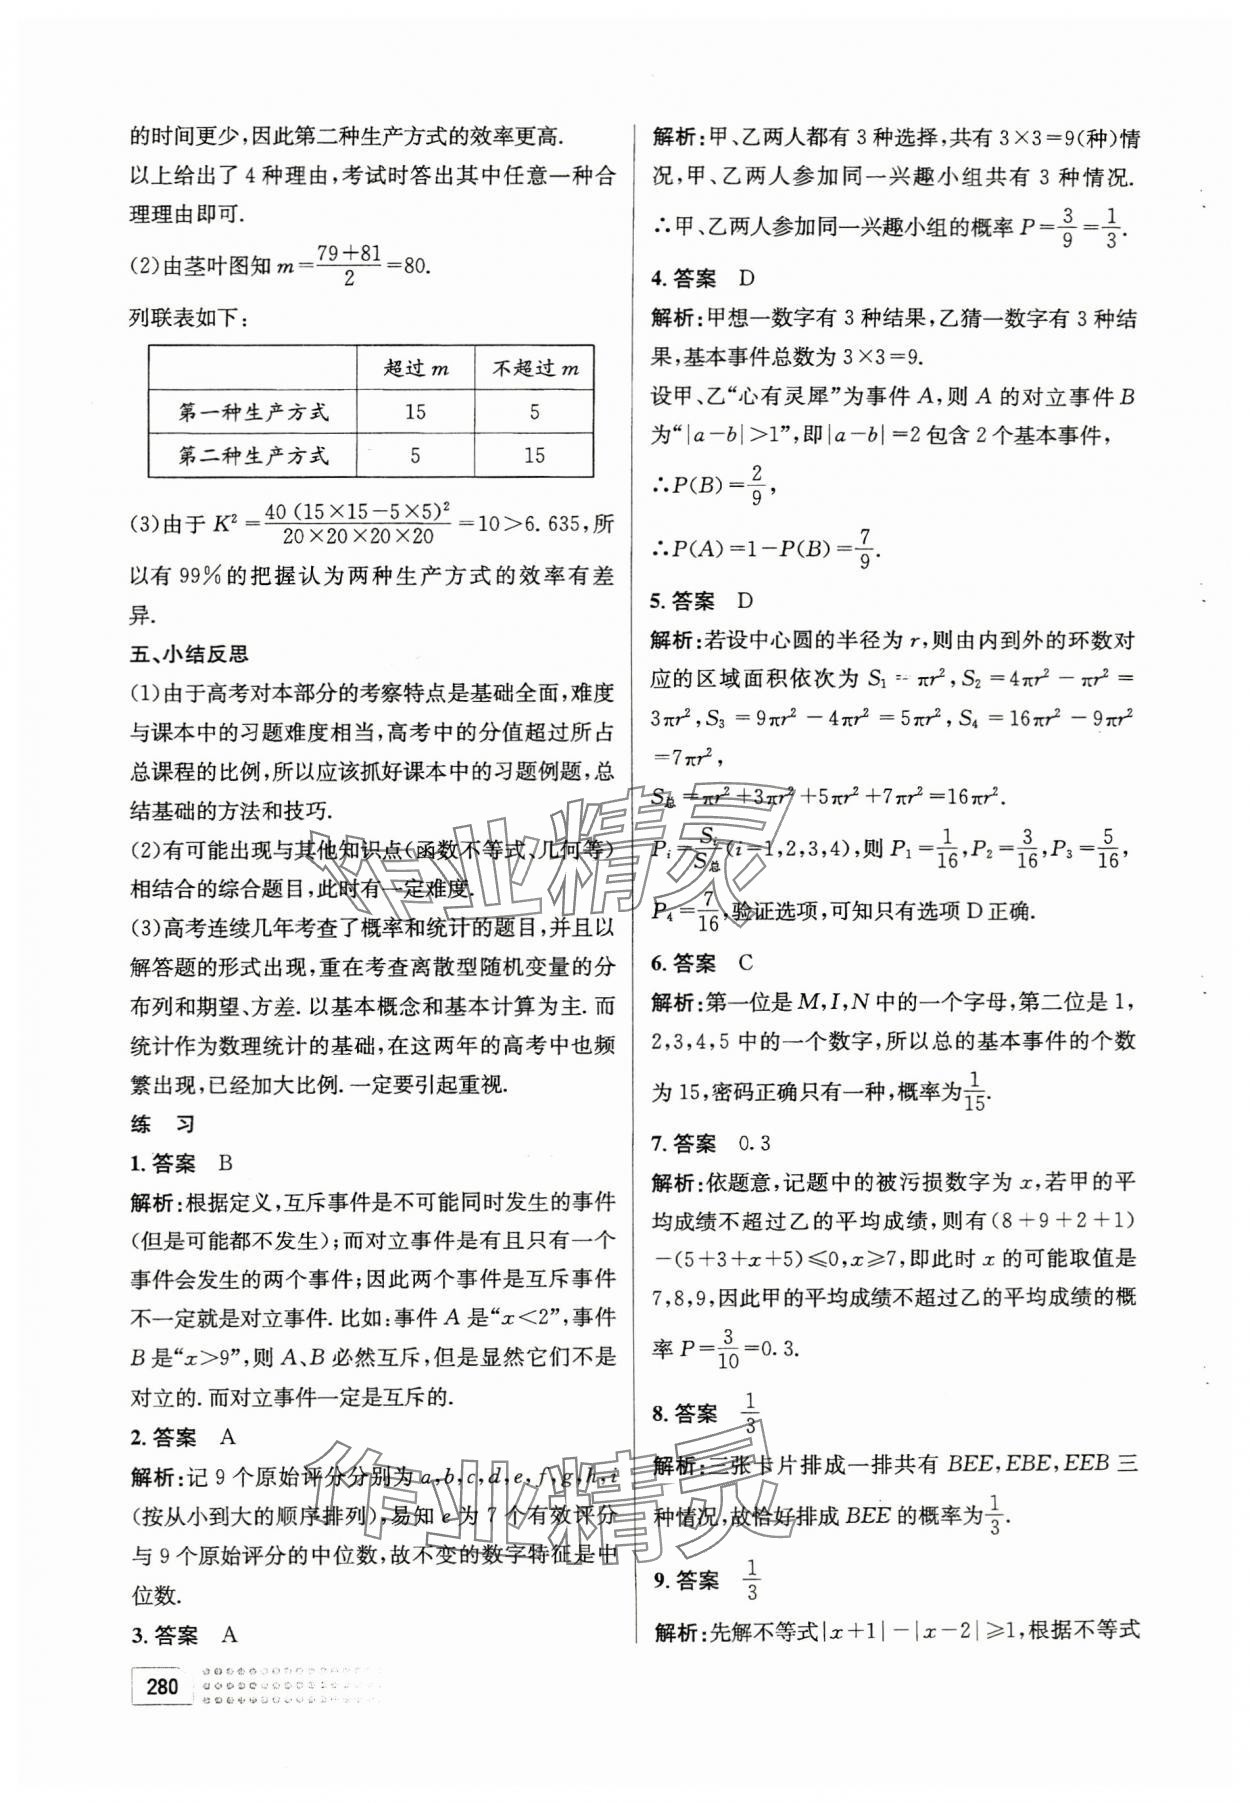 的时间更少,因此第二种生产方式的效率更高.
以上给出了 4 种理由,考试时答出其中任意一种合
理理由即可.
(2)由茎叶图知 m=\frac{79+81}{2}=80.
列联表如下:
超过 m 不超过 m
第一种生产方式 15 5
第二种生产方式 5 15
(3)由于 K²=\frac{40(15×15-5×5)²}{20×20×20×20}=10>6.635,所
以有 99%的把握认为两种生产方式的效率有差
异.
五、小结反思
(1)由于高考对本部分的考察特点是基础全面,难度
与课本中的习题难度相当,高考中的分值超过所占
总课程的比例,所以应该抓好课本中的习题例题,总
结基础的方法和技巧.
(2)有可能出现与其他知识点(函数不等式、几何等)
相结合的综合题目,此时有一定难度.
(3)高考连续几年考查了概率和统计的题目,并且以
解答题的形式出现,重在考查离散型随机变量的分
布列和期望、方差.以基本概念和基本计算为主.而
统计作为数理统计的基础,在这两年的高考中也频
繁出现,已经加大比例.一定要引起重视.
练 习
1.答案 B
解析:根据定义,互斥事件是不可能同时发生的事件
(但是可能都不发生);而对立事件是有且只有一个
事件会发生的两个事件;因此两个事件是互斥事件
不一定就是对立事件.比如:事件 A 是“x<2”,事件
B 是“x>9”,则 A、B 必然互斥,但是显然它们不是
对立的.而对立事件一定是互斥的.
2.答案 A
解析:记 9 个原始评分分别为 a,b,c,d,e,f,g,h,i
(按从小到大的顺序排列),易知 e 为 7 个有效评分
与 9 个原始评分的中位数,故不变的数字特征是中
位数.
3.答案 A
280
解析:甲、乙两人都有 3 种选择,共有 3×3=9(种)情
况,甲、乙两人参加同一兴趣小组共有 3 种情况.
∴甲、乙两人参加同一兴趣小组的概率 P=\frac{3}{9}=\frac{1}{3}.
4.答案 D
解析:甲想一数字有 3 种结果,乙猜一数字有 3 种结
果,基本事件总数为 3×3=9.
设甲、乙“心有灵犀”为事件 A,则 A 的对立事件 B
为“|a-b|>1”,即|a-b|=2 包含 2 个基本事件,
∴P(B)=\frac{2}{9},
∴P(A)=1-P(B)=\frac{7}{9}.
5.答案 D
解析:若设中心圆的半径为 r,则由内到外的环数对
应的区域面积依次为 S₁=πr²,S₂=4πr²-πr²=
3πr²,S₃=9πr²-4πr²=5πr²,S₄=16πr²-9πr²
=7πr²,
S总=πr²+3πr²+5πr²+7πr²=16πr².
Pᵢ=\frac{Sᵢ}{S总}(i=1,2,3,4),则 P₁=\frac{1}{16},P₂=\frac{3}{16},P₃=\frac{5}{16},
P₄=\frac{7}{16},验证选项,可知只有选项 D 正确.
6.答案 C
解析:第一位是 M,I,N 中的一个字母,第二位是 1,
2,3,4,5 中的一个数字,所以总的基本事件的个数
为 15,密码正确只有一种,概率为\frac{1}{15}.
7.答案 0.3
解析:依题意,记题中的被污损数字为 x,若甲的平
均成绩不超过乙的平均成绩,则有(8+9+2+1)
-(5+3+x+5)≤0,x≥7,即此时 x 的可能取值是
7,8,9,因此甲的平均成绩不超过乙的平均成绩的概
率 P=\frac{3}{10}=0.3.
8.答案 \frac{1}{3}
解析:三张卡片排成一排共有 BEE,EBE,EEB 三
种情况,故恰好排成 BEE 的概率为\frac{1}{3}.
9.答案 \frac{1}{3}
解析:先解不等式|x+1|-|x-2|≥1,根据不等式
作业精灵
作业精灵